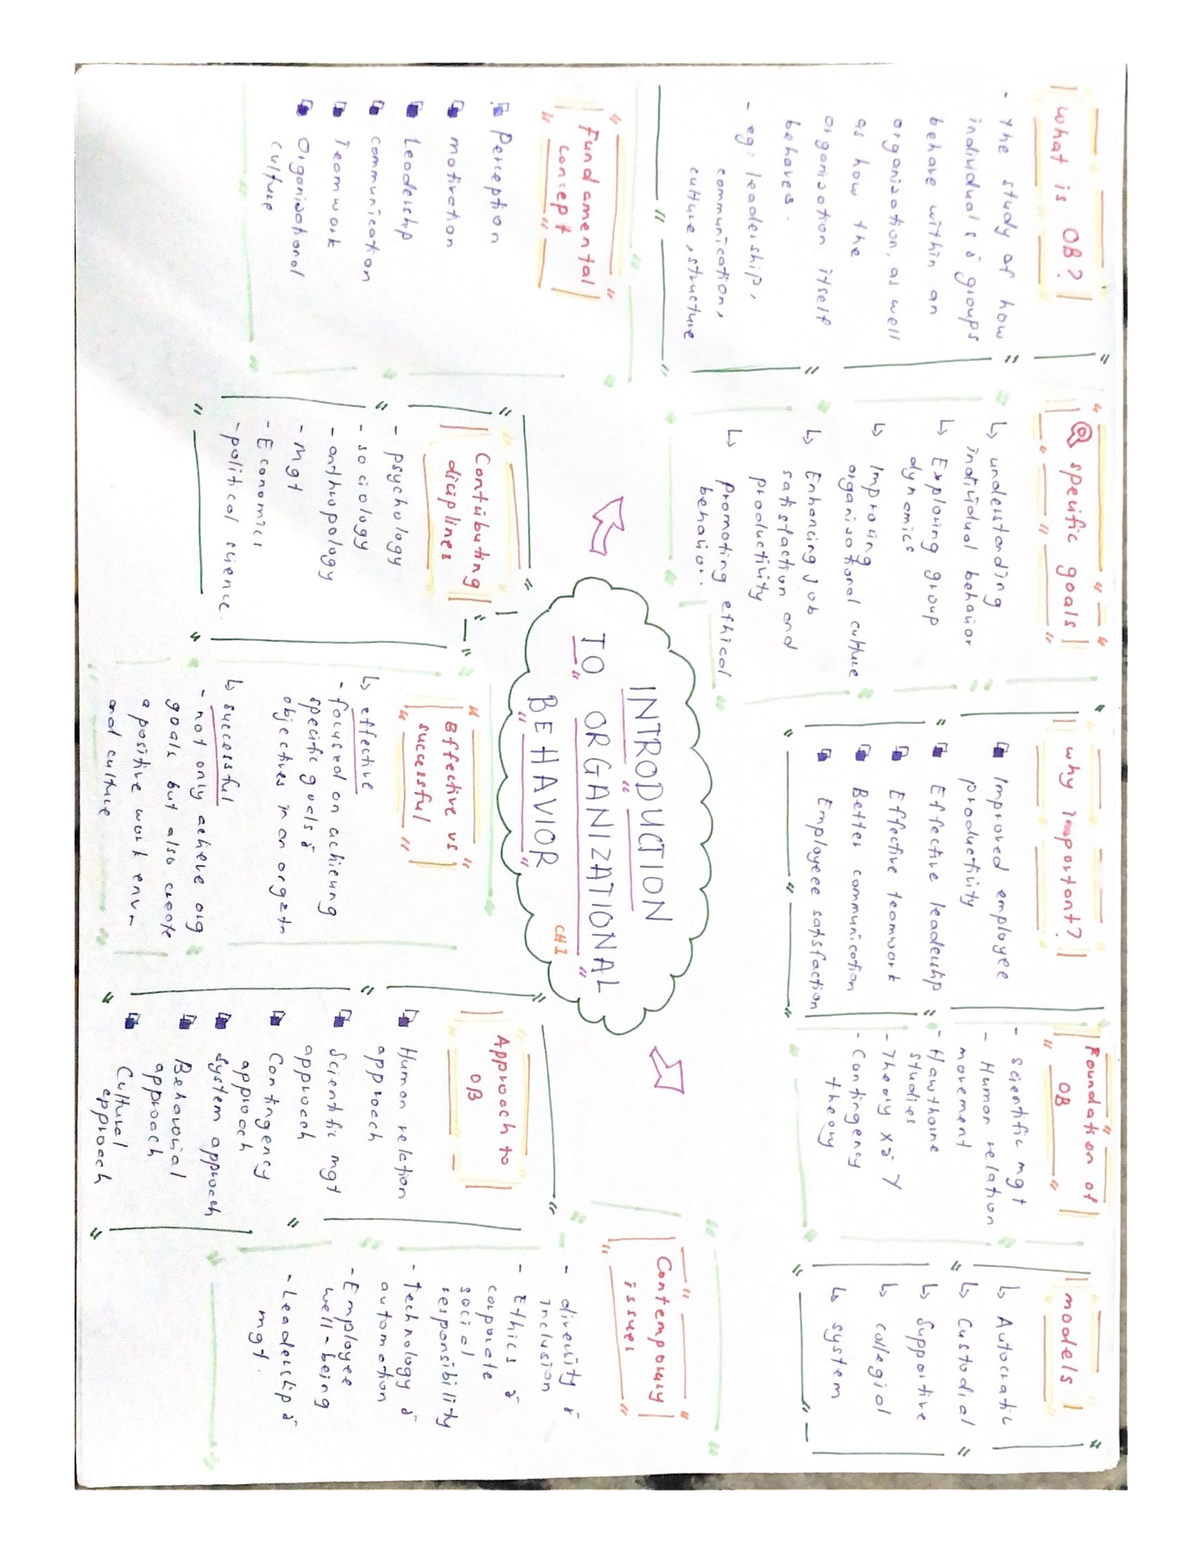 what is OB?
- the study of how
individuals & groups
behave within an
organisation, as well
as how the
organisation itself
behaves.
- eg: leadership,
communication,
culture, structure
specific goals
↳ understanding
individual behavior
↳ Exploring group
dynamics
↳ Improving
organisational culture
↳ Enhancing job
satisfaction and
productivity
↳ promoting ethical
behavior.
why important?
Improved employee
productivity
Effective leadership
Effective teamwork
Better communication
Employeee satisfaction
Foundation of
OB
- scientific mgt
- Human relation
movement
- Hawthorne
studies
- Theory X & Y
- Contingency
theory
models
↳ Autocratic
↳ Custodial
↳ Supportive
↳ collegial
↳ system
INTRODUCTION
TO ORGANIZATIONAL
BEHAVIOR
CH1
Fundamental
concept
Perception
motivation
Leadership
communication
Teamwork
Organisational
culture
Contributing
diciplines
- psychology
- sociology
- anthropology
- Mgt
- Economics
- political science.
Effective vs
successful
↳ effective
- focused on achieving
specific goals &
objectives in an orgztn
↳ successful
- not only achieve org
goals but also create
a positive work envn
and culture
Approach to
OB
Human relation
approach
Scientific mgt
approach
Contingency
approach
System approach
Behavorial
approach
Cultural
approach
Contemporary
issues
- diversity &
inclusion
- Ethics &
corporate
social
responsibility
- Technology &
automation
- Employee
well-being
- Leadership &
mgt.